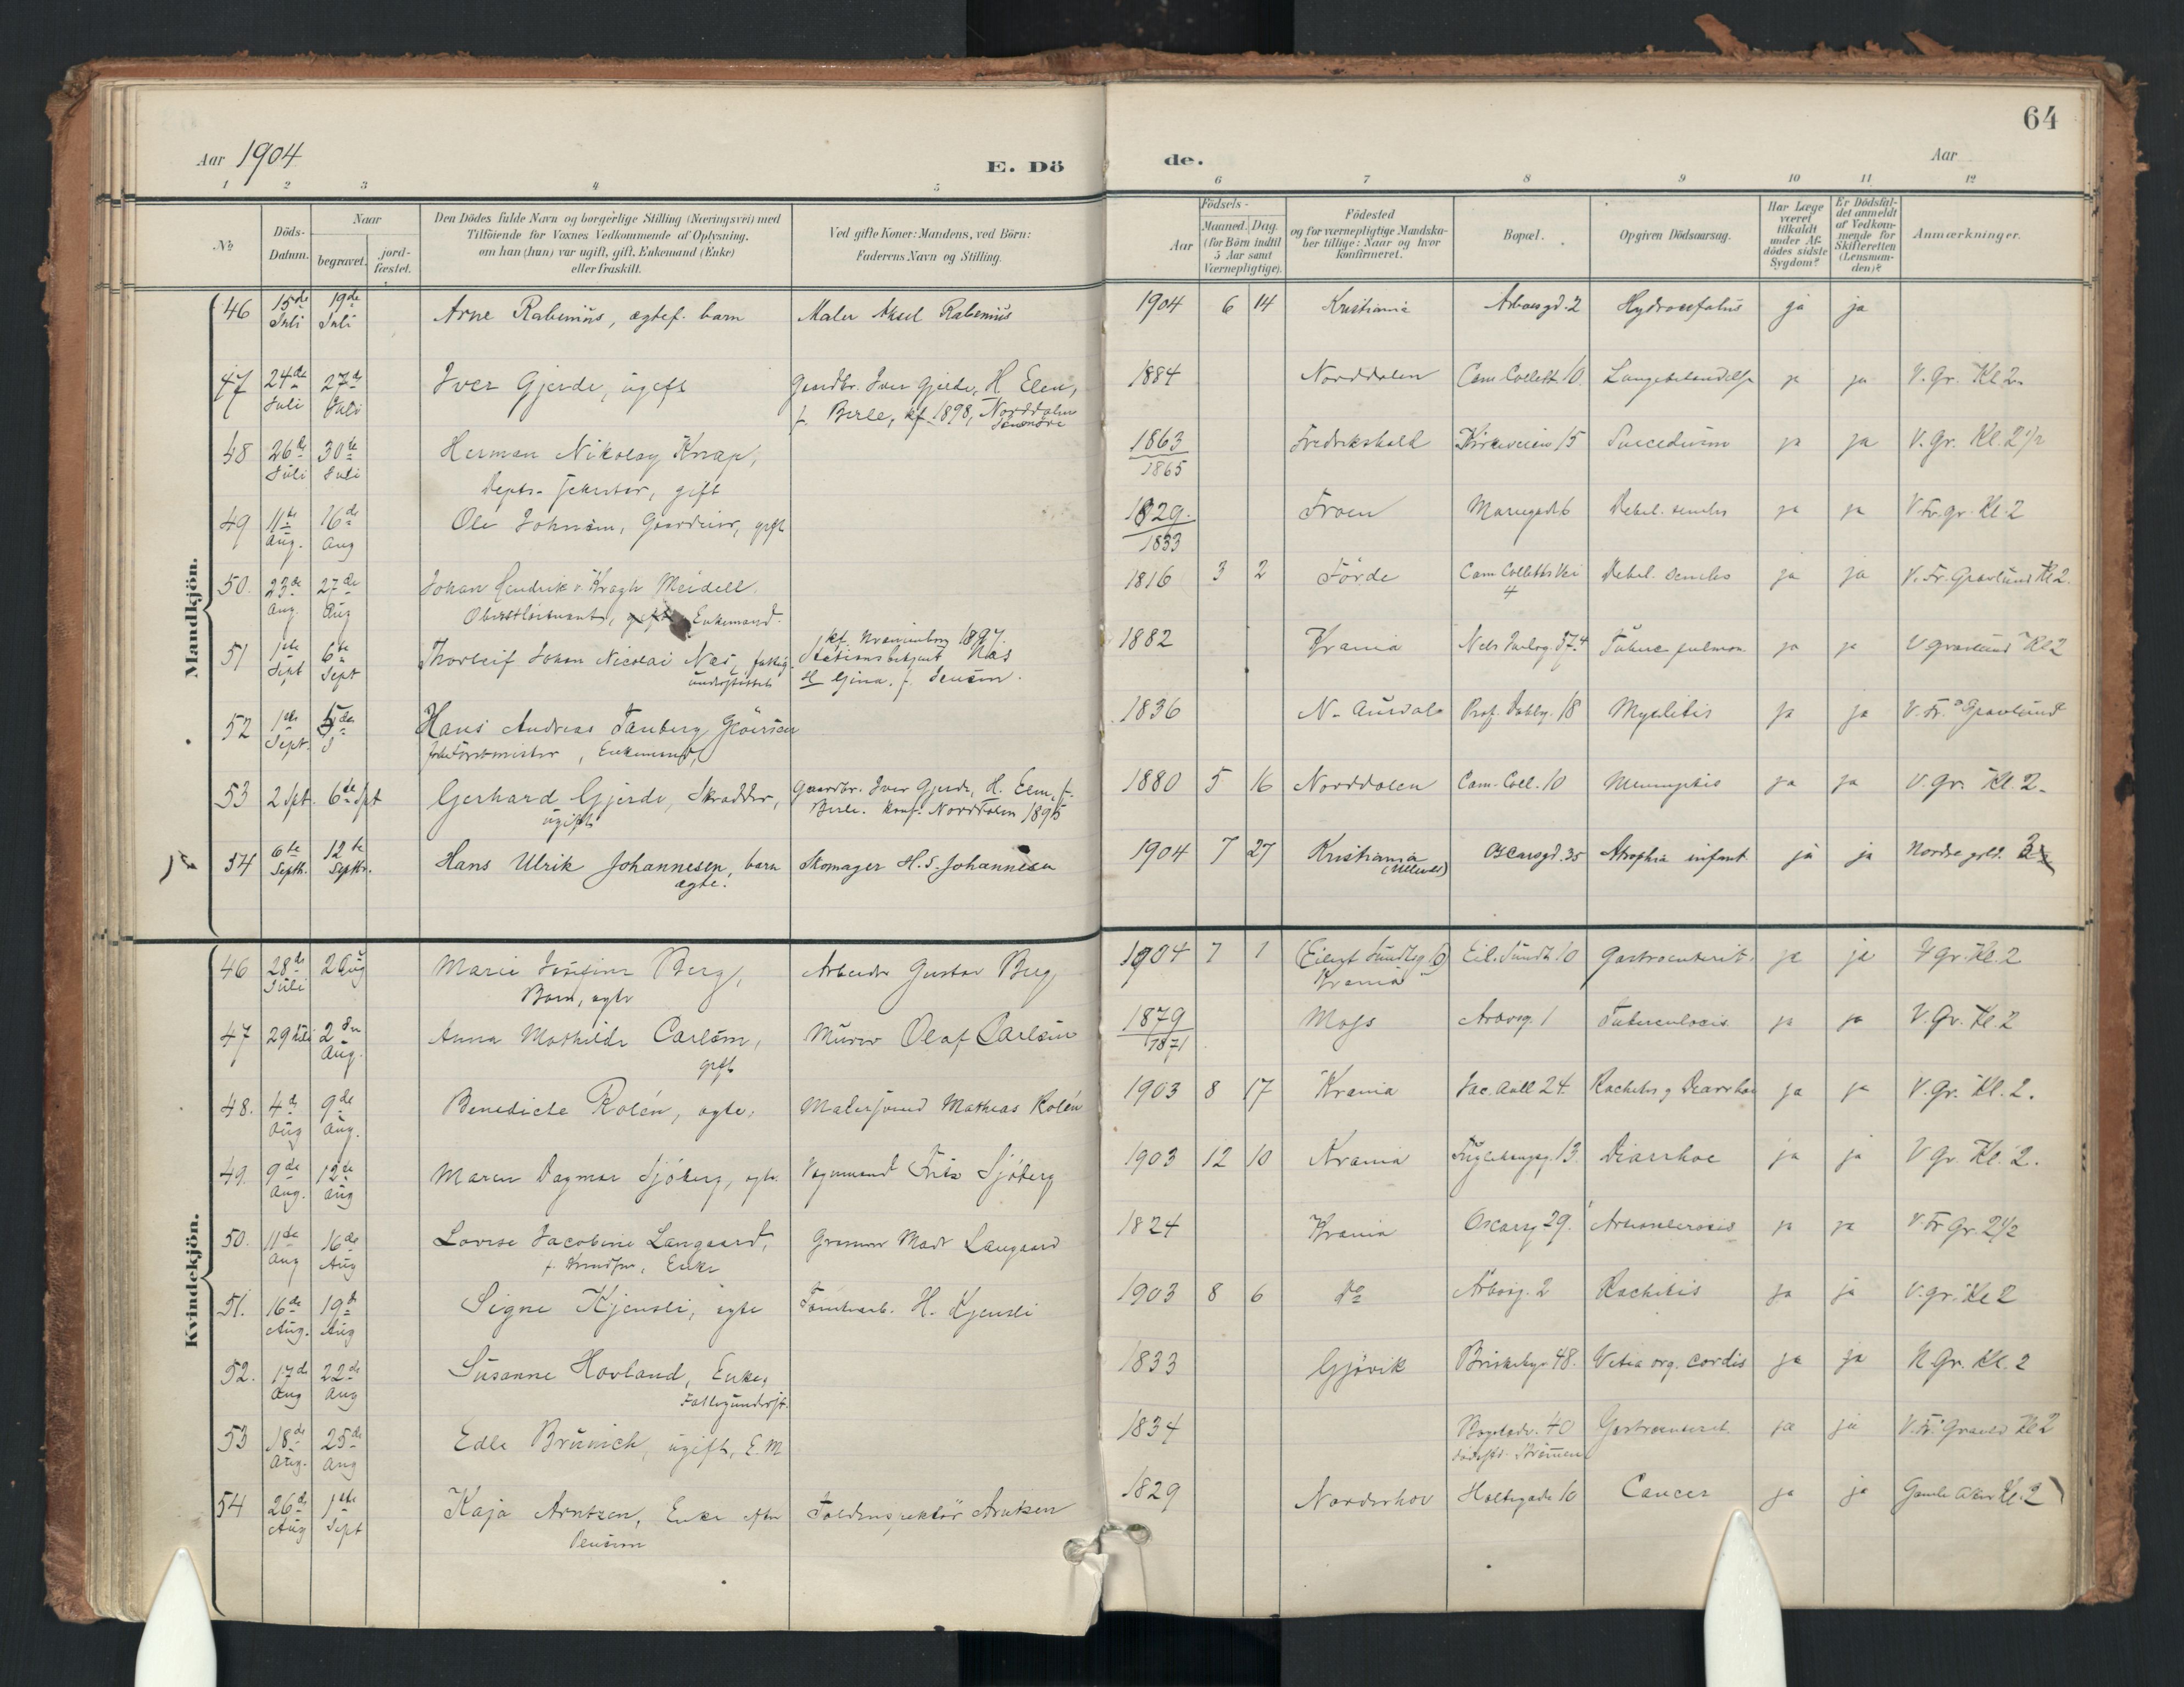 64
Aar 1904
E. Dö
de.
Aar
1 2 3 4 5 6 7 8 9 10 11 12
No
Döds-Datum.
Naar
begravet.
jord-fæstet.
Den Dödes fulde Navn og borgerlige Stilling (Næringsvei) med
Tilföiende for Voxnes Vedkommende af Oplysning,
om han (hun) var ugift, gift, Enkemand (Enke)
eller fraskilt.
Ved gifte Koner: Mandens, ved Börn:
Faderens Navn og Stilling.
Födsels-
Aar
Maaned.
Dag.
(for Börn indtil
5 Aar samt
Værnepligtige).
Födested
og for værnepligtige Mandska-
ber tillige: Naar og hvor
konfirmeret.
Bopæl.
Opgiven Dödsaarsag.
Har Læge
været
tilkaldt
under Af-
dödes sidste
Sygdom?
Er Dödsfal-
det anmeldt
af Vedkom-
mende for
Skifteretten
(Lensman-
den)?
Anmærkninger.
Mandkjön.
46 15de Juli 19de Juli Arne Rabenius, ægtef. barn Maler Aksel Rabenius 1904 6 14 Kristiania Arbosgd. 2 Hydrocefalus ja ja
47 24de Juli 27de Juli Iver Gjerde, ugift Gaardbr. Iver Gjerde, H. Elen, 1884 Norddalen Cam. Collett. 10 ja ja V. Gr. Kl 2.
f. Berle, kf. 1898, Norddalen
48 26de Juli 30te Juli Herman Nikolay Knap, 1863 Fredrikshald Kirkeveien 15 ja ja V. Gr. Kl. 2 1/2
1865
Depts. gift
49 11te Aug. 16de Aug Ole Johnsen, gift 1829. Froen Mariegade 6 Debil. senilis ja ja V. Fr. gr. Kl. 2
1833
50. 23de Aug. 27de Aug Johan Hendrik v. Kragh Meidell. 1816 3 2 Förde Cam Colletts Vei 4 Debil. senilis ja ja V. Fr. Gravlund Kl 2.
Oberstløitnant, gift Enkemand.
51 1ste Sept 6te Sept Thorleif Johan Nicolai Næs, fattig-understøttet kf. 1897. Stationsbetjent Næs 1882 Krania Tuberc. pulmon. ja ja V gravlund Kl 2
H Gina, f. Jensen.
52 1ste Sept. 5de S Hans Andreas Tanberg Gløersen 1836 N. Aurdal Prof. Dahlsg. 18 Myelitis ja ja V. Fr. Gravlund
Forstmester, Enkemand,
53 2 Spt. 6te Spt Gerhard Gjerde, Skrædder, ugift Gaardbr. Iver Gjerde, H. Elen, f. 1880 5 16 Norddalen Cam. Coll. 10 Meningitis ja ja V. Gr. Kl. 2.
Berle. Konf. Norddalen 1895
54 6te Septb. 12te Septbr. Hans Ulrik Johannesen, barn ægte. Skomager H. S. Johannesen 1904 7 27 Kristiania (Ullevold) Oscarsgd. 35 Atrophia infant. ja ja Nordre grld.
Kvindekjön.
46 28de Juli 2 Aug Marie Josefine Berg, Arbeider Gustav Berg 1904 7 1 (Eilert Sundtsg. 10) Krania Eil. Sundt. 10 Gastroenterit. ja ja V gr. Kl. 2
Barn, ægte
47 29 Juli 2den Aug. Anna Mathilde Carlsen, gift Murer Olaf Carlsen 1879 Moss Arbosg. 1 Tuberculosis. ja ja V. Gr. Kl. 2
1871
48. 4de Aug 9de Aug. Benedicte Rolén, ægte, Malersvend Mathias Rolén 1903 8 17 Krania Jac. Aall 24. Rachitis og Diarrhoe ja ja V. Gr. Kl. 2.
49. 9de Aug. 12te Aug Maren Dagmar Sjöberg, ægte. Vognmand Fritz Sjöberg 1903 12 10 Krania Fuglehaugsg. 13. Diarrhoe ja ja V Gr. Kl. 2.
50. 11te Aug 16de Aug Lovise Jacobine Langaard, Enke Langaard 1824 Krania Oscarsg 29. Arterosclerosis ja ja V Fr Gr. 2 1/2
51. 16de Aug. 19de Aug Signe Kjensli, ægte Tomtearb. H. Kjensli 1903 8 6 do Arbosg. 2 Rachitis ja ja V. gr. Kl 2
52. 17de Aug 22de Aug Susanne Hovland, Enke, 1833 Gjövik Briskebyv. 48. Vitia org. cordis ja ja N. Gr. Kl. 2
Fattigunderst.
53 18de Aug. 25de Aug Edle Brünich, ugift, E. M 1834 Bogstadv. 40 Gastroenterit ja ja V. Fr. Gravld Kl 2
54 26de Aug 1ste Sept Kaja Arntzen, Enke efter Toldinspektör Arntzen 1829 Norderhov Holtegade 10 Cancer ja ja Gamle Aker Kl. 2
Pension